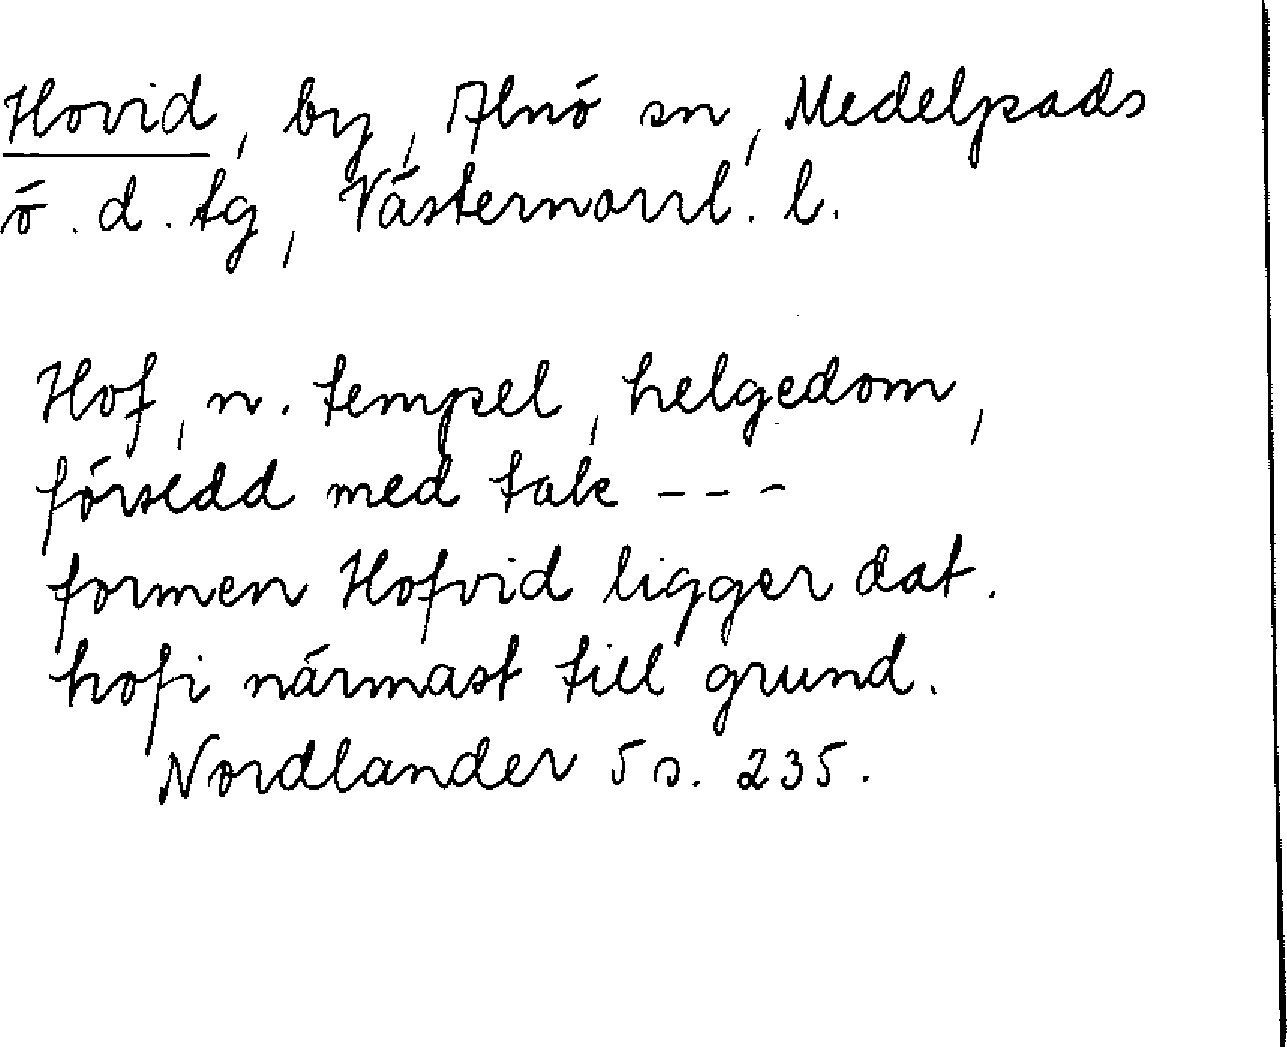 Hovid, by, Alnö sn, Medelpads
ö. d. tg, Västernorrl. l.
Hof, n. tempel, helgedom,
försedd med tak ---
formen Hofvid ligger dat.
hofi närmast till grund.
Nordlander 5 s. 235.